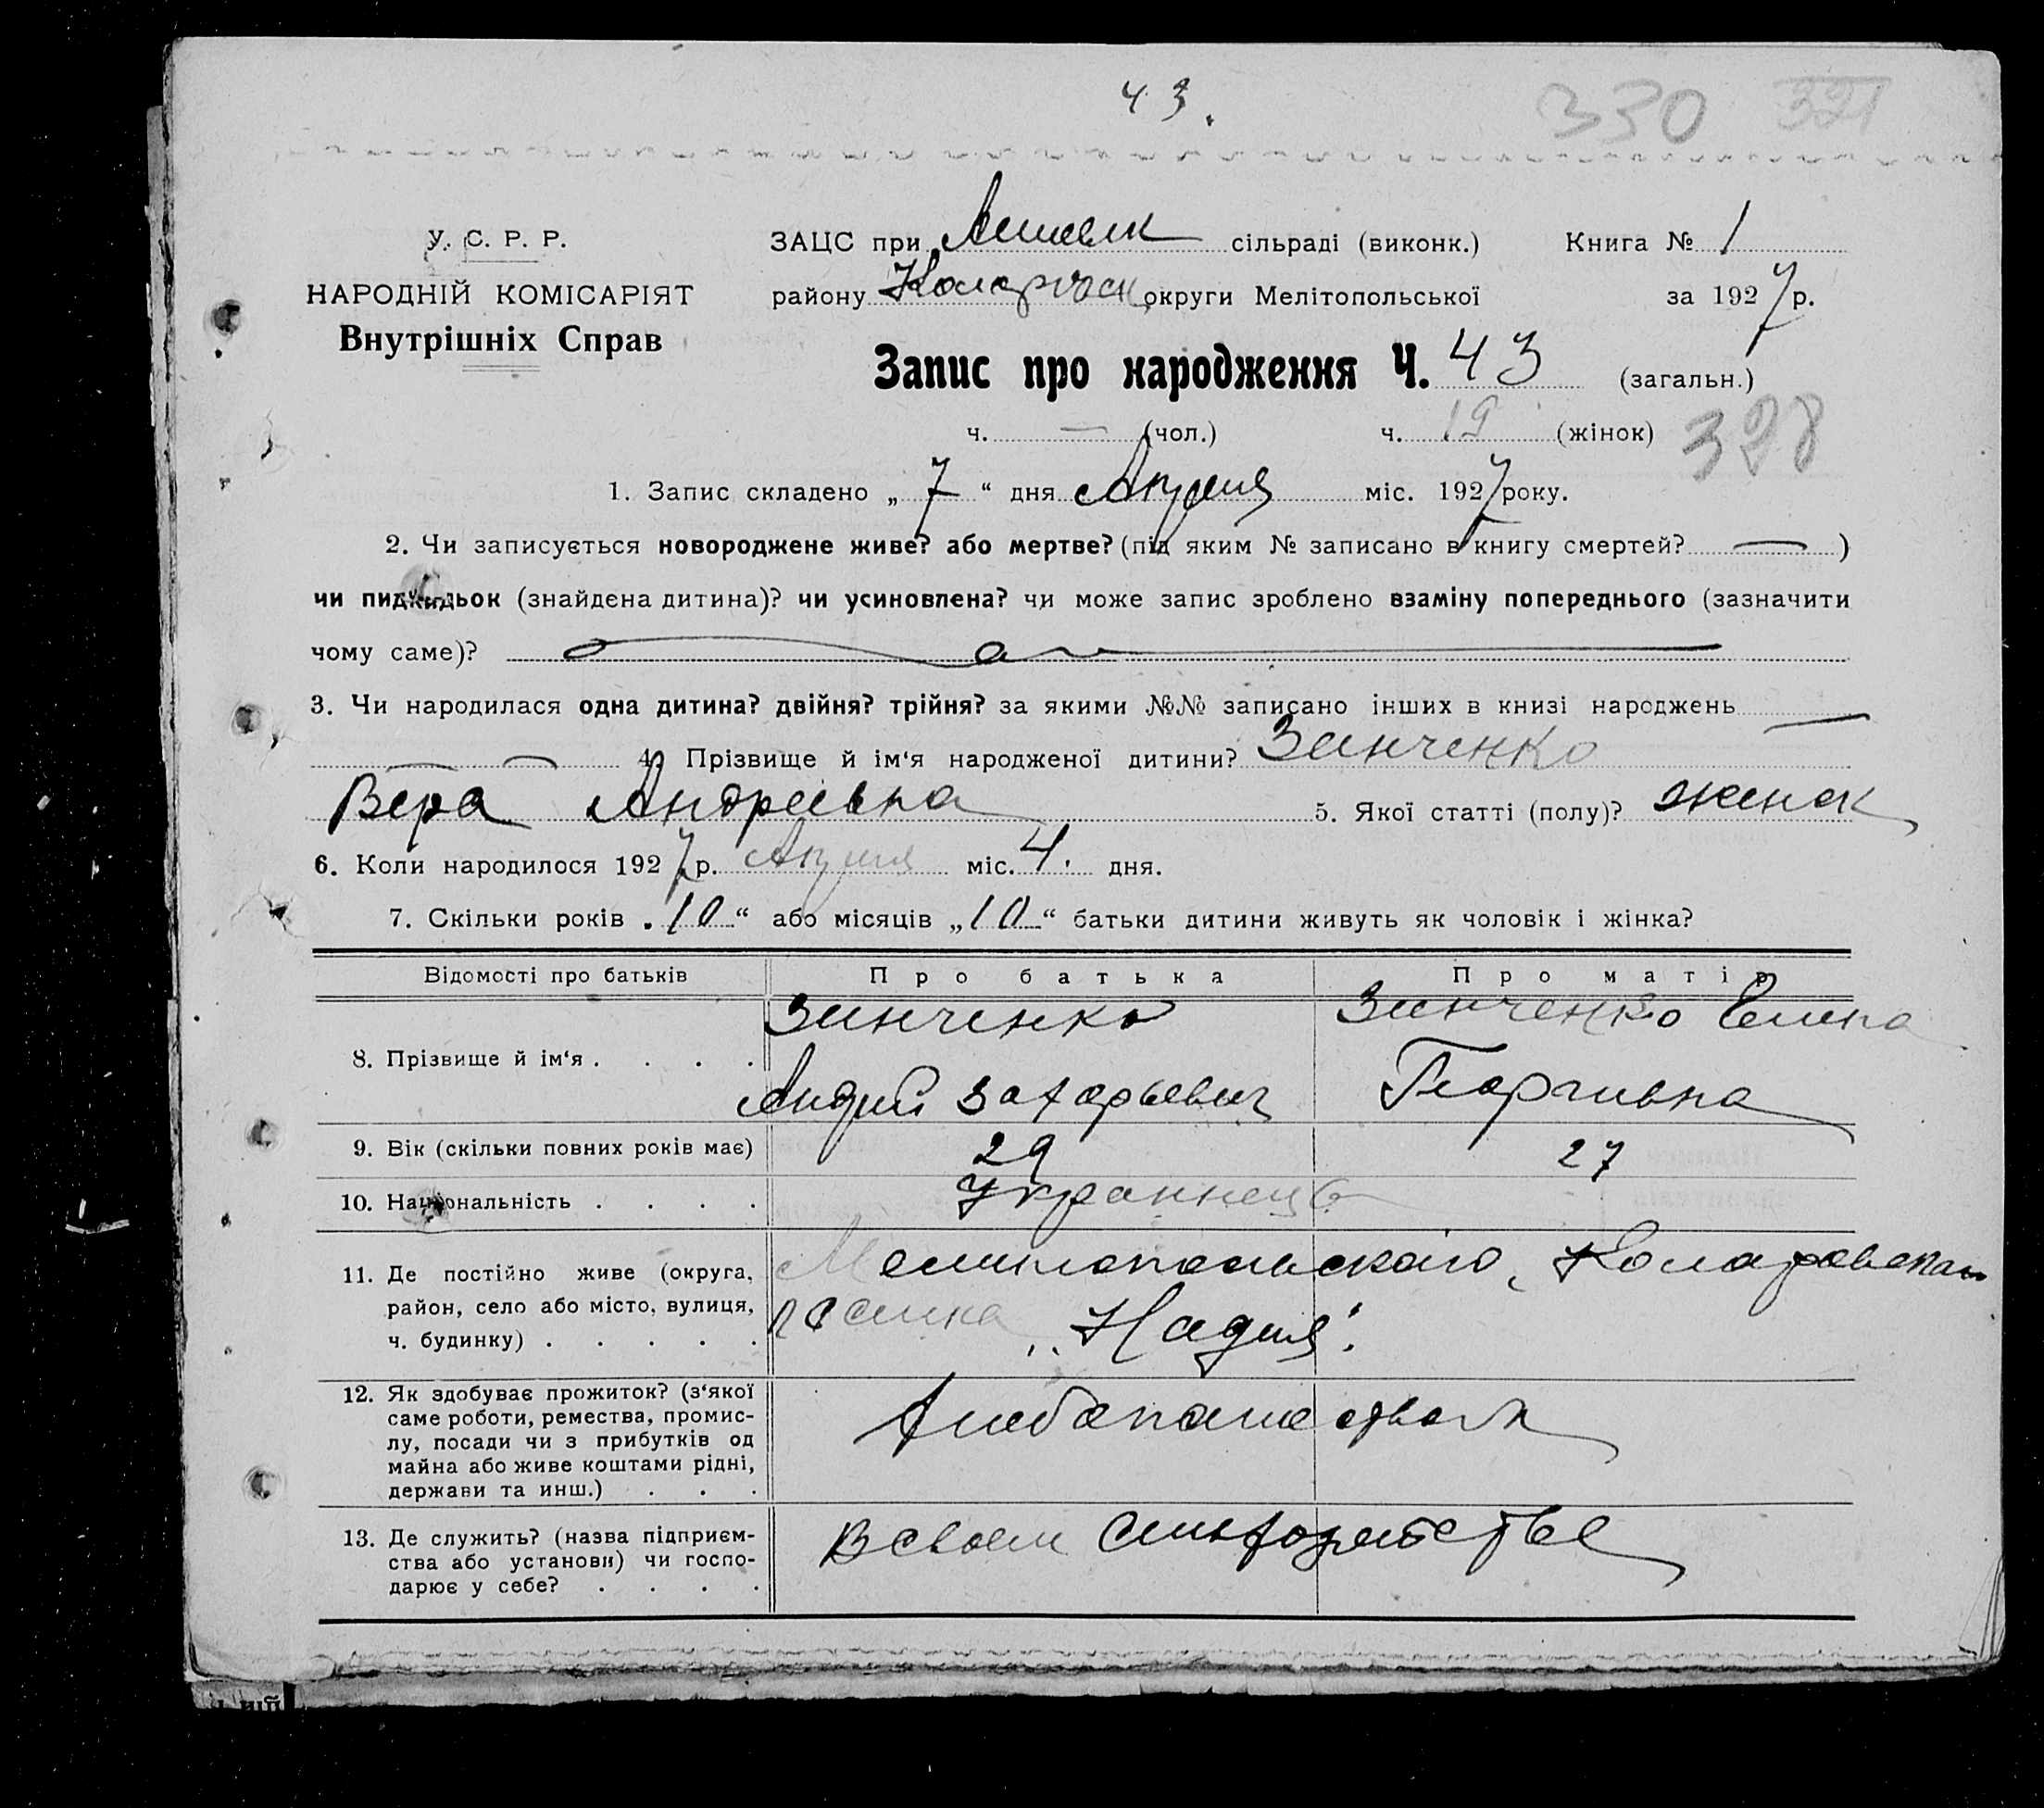 43.
330 321
У. С. Р. Р.
НАРОДНІЙ КОМІСАРІЯТ
Внутрішніх Справ
ЗАЦС при сільраді (виконк.) Книга № 1
району округи Мелітопольської за 1927 р.
Запис про народження Ч. 43 (загальн.)
ч. — (чол.) ч. 19 (жінок) 328
1. Запис складено „ 7 “ дня Апреля міс. 1927 року.
2. Чи записується новороджене живе? або мертве? (під яким № записано в книгу смертей? — )
чи пидкидьок (знайдена дитина)? чи усиновлена? чи може запис зроблено взаміну попереднього (зазначити
чому саме)?
3. Чи народилася одна дитина? двійня? трійня? за якими №№ записано інших в книзі народжень —
— — 4. Прізвище й ім‘я народженої дитини? Зинченко
Вера Андреевна 5. Якої статті (полу)? женск
6. Коли народилося 1927 р. Апреля міс. 4. дня.
7. Скільки років „10“ або місяців „10“ батьки дитини живуть як чоловік і жінка?
Відомості про батьків Про батька Про матір
8. Прізвище й ім‘я . . . . Зинченко Зинченко Елена
Андрей Захарьевич Георгиевна
9. Вік (скільки повних років має) 29 27
10. Національність . . . . Украинец
11. Де постійно живе (округа,
район, село або місто, вулиця,
ч. будинку) . . . . .
Мелитопольского, Коларовского
„Надия“.
12. Як здобуває прожиток? (з‘якої
саме роботи, ремества, промис-
лу, посади чи з прибутків од
майна або живе коштами рідні,
держави та инш.) . . .
Хлебопашеством
13. Де служить? (назва підприєм-
ства або установи) чи госпо-
дарює у себе? . . . .
В своем сельхозяйстве